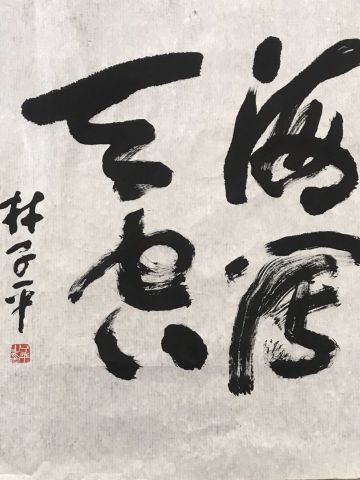 海阔
天空
林子平